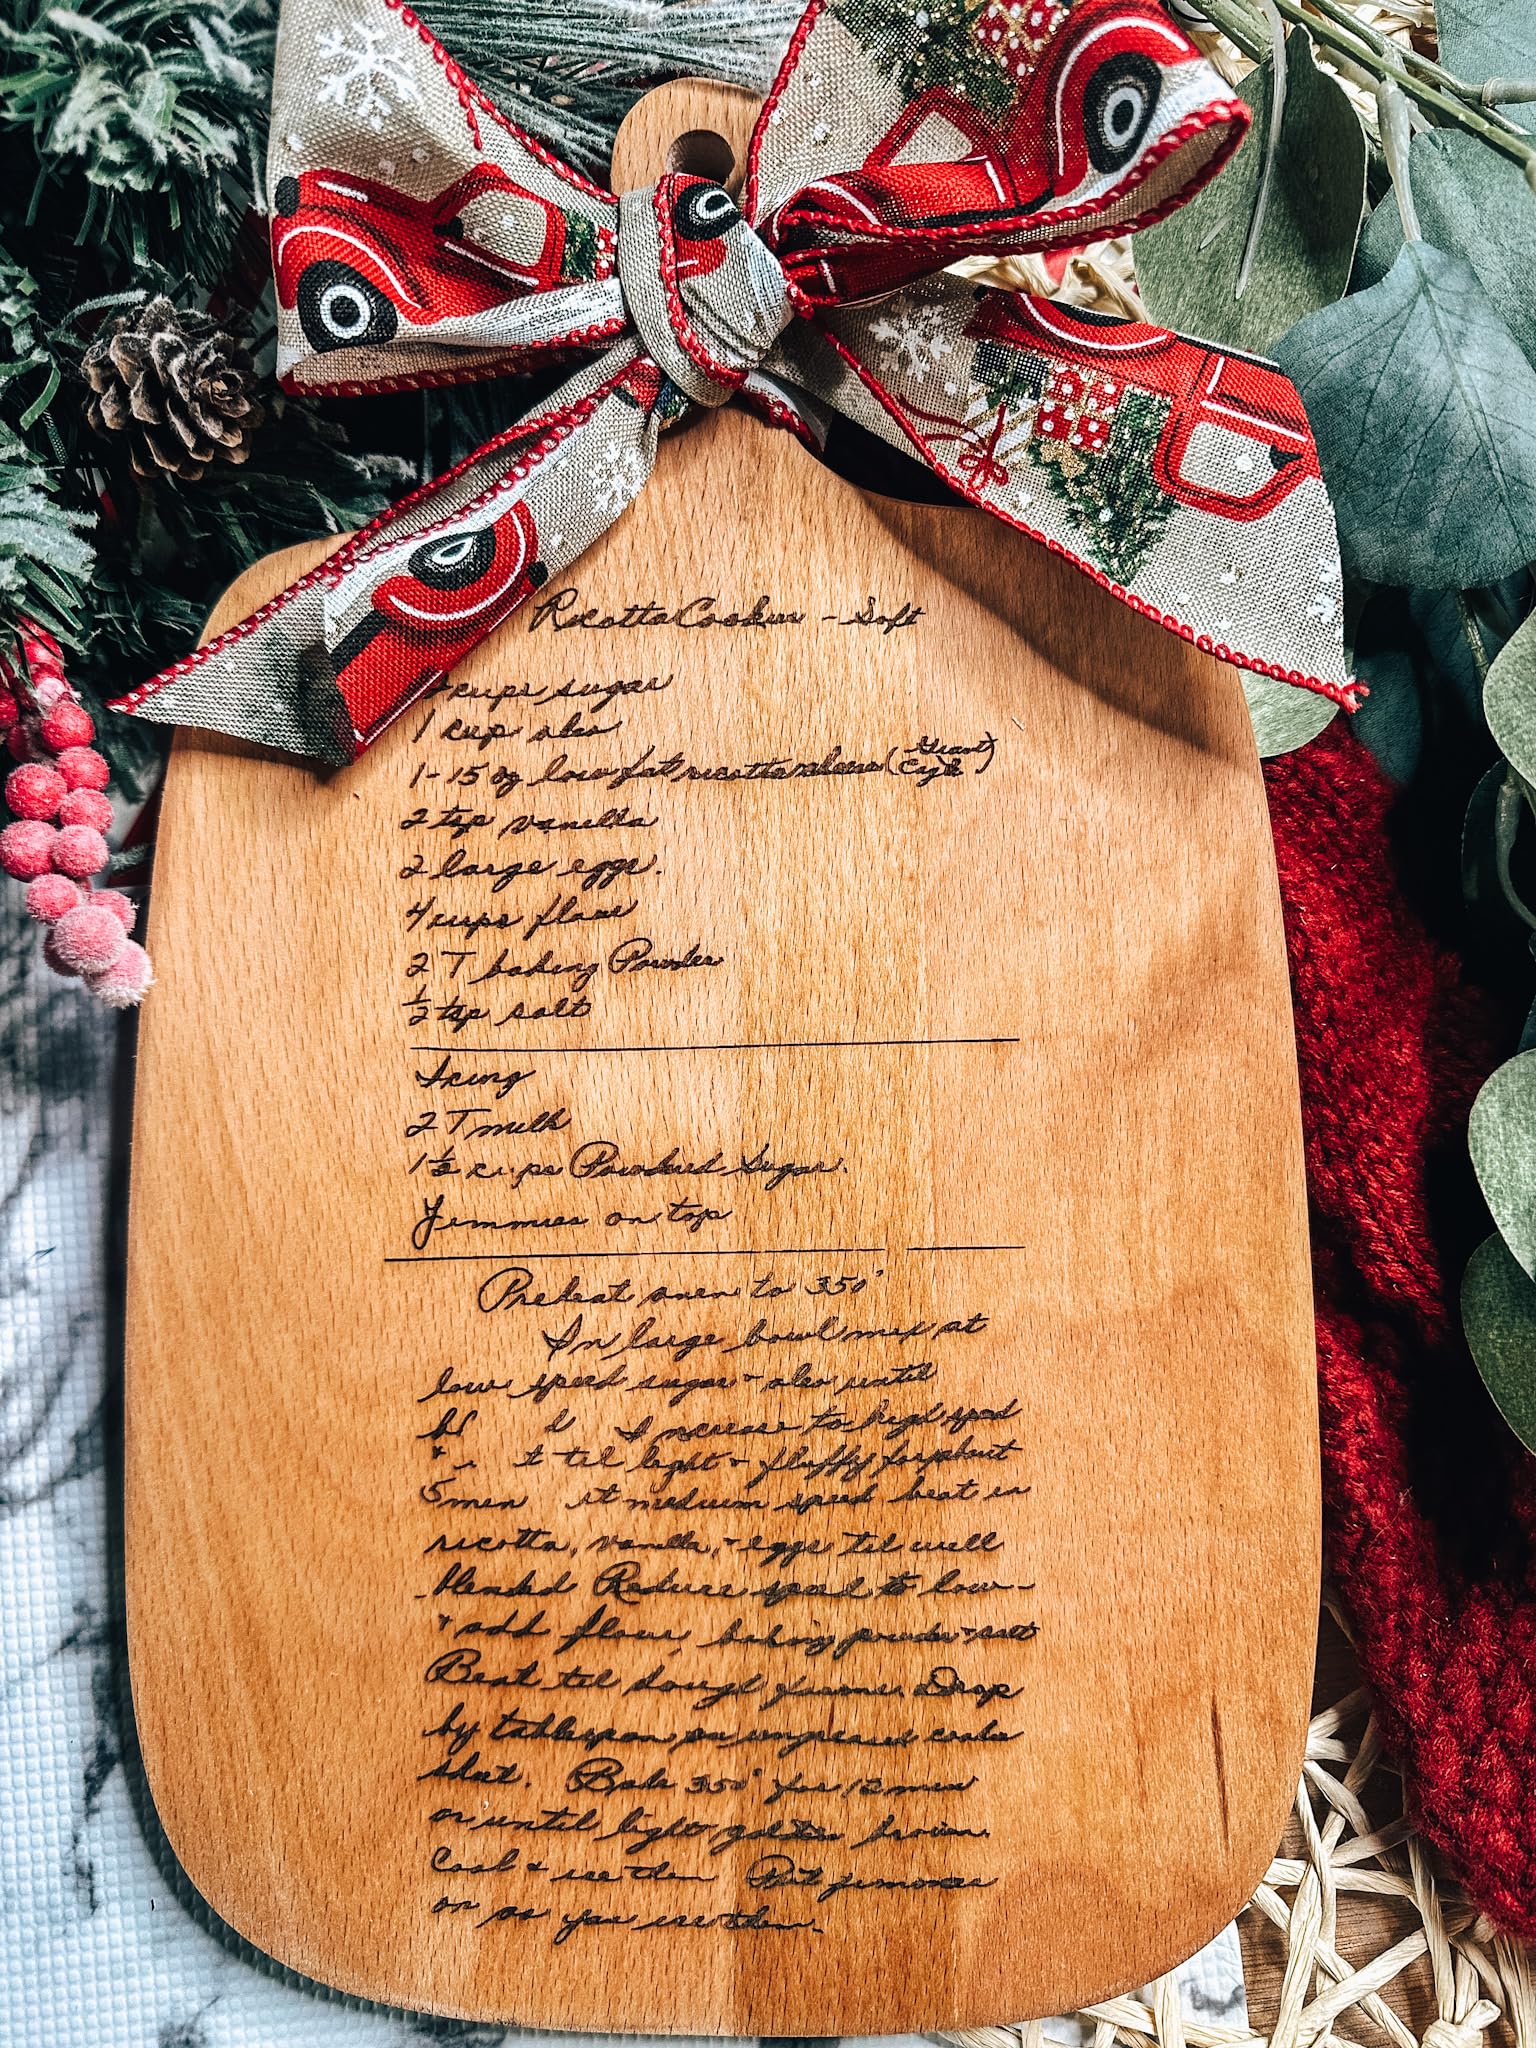 Ricotta Cookies - Soft
cups sugar
1 cup oleo
1-15 oz low fat ricotta cheese (Giant Eagle)
2 tsp vanilla
2 large eggs.
4 cups flour
2 T baking Powder
½ tsp salt
Icing
2 T milk
1½ cups Powdered Sugar.
Jimmies on top
Preheat oven to 350°
In large bowl mix at
low speed sugar + oleo until
Increase to high speed
til light + fluffy for about
5 min at medium speed beat in
ricotta, vanilla, + eggs til well
blended Reduce speed to low -
+ add flour, baking powder + salt
Beat til dough forms. Drop
by tablespoon on ungreased cookie
sheet. Bake 350° for 12 min
or until light golden brown.
Cool + ice them Put jimmies
on as you ice them.